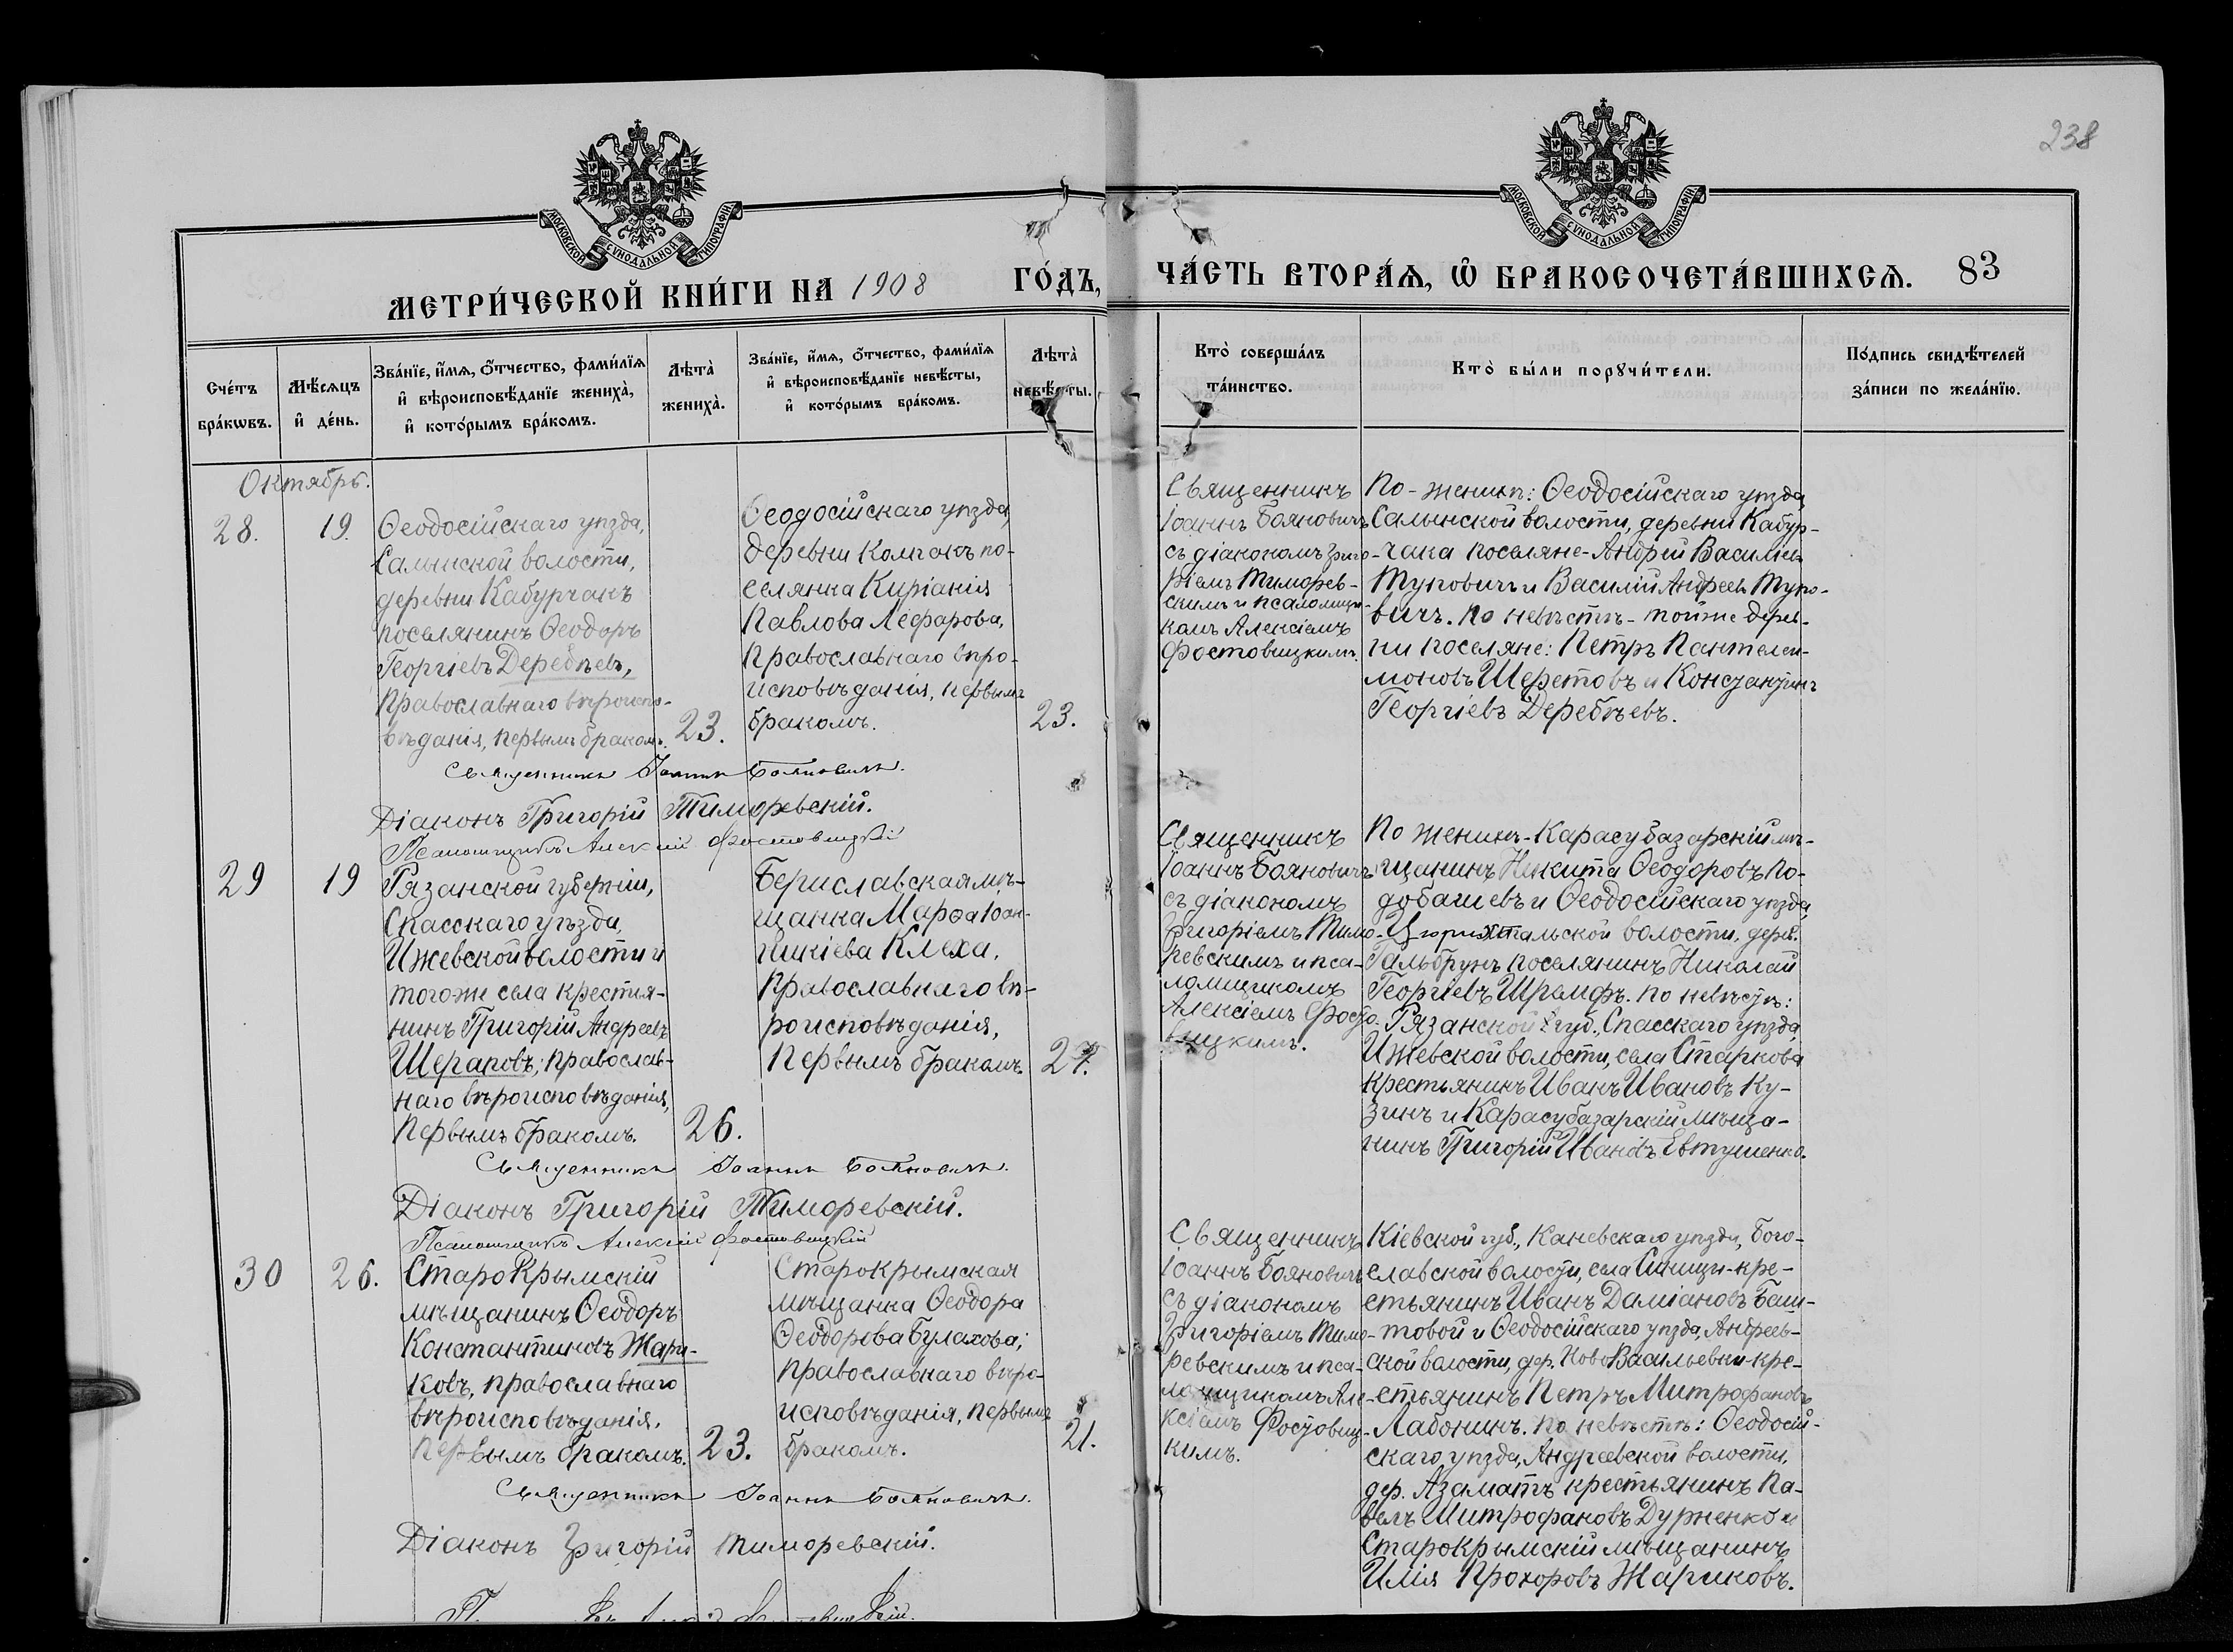 238
МОСКОВСКОЙ СѴНОДАЛЬНОЙ ТИПОГРАФІИ
МОСКОВСКОЙ СѴНОДАЛЬНОЙ ТИПОГРАФІИ
МЕТРИ́ЧЕСКОЙ КНИ́ГИ НА 1908 ГО́ДЪ,
ЧА́СТЬ ВТОРА́Ѧ, Ѽ БРАКОСОЧЕТА́ВШИХСѦ. 83
Сче́тъ бра́кѡвъ.
Мѣ́сѧцъ и҆ де́нь.
Зва́нїе, и҆́мѧ, ѻ҆́тчество, фами́лїѧ
и҆ вѣроисповѣ́данїе жениха̀,
и҆ кото́рымъ бра́комъ.
Лѣта̀ жениха̀.
Зва́нїе, и҆́мѧ, ѻ҆́тчество, фами́лїѧ
и҆ вѣроисповѣ́данїе невѣ́сты,
и҆ кото́рымъ бра́комъ.
Лѣта̀ невѣ́сты.
Кто̀ соверша́лъ
та́инство.
Кто̀ бы́ли порꙋчи́тели.
По́дпись свидѣ́телей
за́писи по жела́нїю.
Октябрь.
28.
19.
Ѳеодосійскаго уѣзда,
Салынской волости,
деревни Кабурчакъ
поселянинъ Ѳеодоръ
Георгіевъ Деребѣевъ,
православнаго вѣроиспо-
вѣданія, первымъ бракомъ.
23.
Ѳеодосійскаго уѣзда,
деревни Колчакъ по-
селянка Киріакія
Павлова Лефарова,
православнаго вѣро-
исповѣданія, первымъ
бракомъ.
23.
Священникъ
Іоаннъ Бояновичъ
съ діакономъ Григо-
ріемъ Тиморев-
скимъ и псаломщи-
комъ Алексіемъ
Фостовицкимъ.
По-женихѣ: Ѳеодосійскаго уѣзда,
Салынской волости, деревни Кабур-
чака поселяне-Андрей Васильевъ
Туповичъ и Василій Андреевъ Тупо-
вичъ. По невѣстѣ-той же дерев-
ни поселяне: Петръ Пантелеи-
моновъ Шеретовъ и Константинъ
Георгіевъ Деребѣевъ.
Священникъ Іоаннъ Бояновичъ.
Діаконъ Григорій Тиморевскій.
Псаломщикъ Алексій Фостовицкій
29
19
Рязанской губерніи,
Спасскаго уѣзда,
Ижевской волости и
того же села крестья-
нинъ Григорій Андреевъ
Шераповъ; православ-
наго вѣроисповѣданія,
первымъ бракомъ.
26.
Бериславская мѣ-
щанка Марѳа Іоан-
никіева Клеха,
православнаго вѣ-
роисповѣданія,
первымъ бракомъ.
27.
Священникъ
Іоаннъ Бояновичъ
съ діакономъ
Григоріемъ Тимо-
ревскимъ и пса-
ломщикомъ
Алексіемъ Фосто-
вицкимъ.
По женихѣ-Карасубазарскій мѣ-
щанинъ Никита Ѳеодоровъ По-
добашевъ и Ѳеодосійскаго уѣзда,
Цюрихтальской волости, дерев.
Гальбрунъ поселянинъ Николай
Георгіевъ Шремфъ. По невѣстѣ:
Рязанской губ., Спасскаго уѣзда,
Ижевской волости, села Старкова
крестьянинъ Иванъ Ивановъ Ку-
зинъ и Карасубазарскій мѣща-
нинъ Григорій Ивановъ Евтушенко.
Священникъ Іоаннъ Бояновичъ.
Діаконъ Григорій Тиморевскій.
Псаломщикъ Алексій Фостовицкій
30
26.
СтароКрымскій
мѣщанинъ Ѳеодоръ
Константиновъ Жари-
ковъ, православнаго
вѣроисповѣданія,
первымъ бракомъ.
23.
Старокрымская
мѣщанка Ѳеодора
Ѳеодорова Булахова;
православнаго вѣро-
исповѣданія, первымъ
бракомъ.
21.
Священникъ
Іоаннъ Бояновичъ
съ діакономъ
Григоріемъ Тимо-
ревскимъ и пса-
ломщикомъ Але-
ксіемъ Фостовиц-
кимъ.
Кіевской губ., Каневскаго уѣзда, Бого-
славской волости, села Синицы-кре-
стьянинъ Иванъ Даміановъ Баш-
товой и Ѳеодосійскаго уѣзда, Андреев-
ской волости, дер. НовоВасильевки-кре-
стьянинъ Петръ Митрофановъ
Лабонинъ. По невѣстѣ: Ѳеодосій-
скаго уѣзда, Андреевской волости,
дер. Азаматъ крестьянинъ Па-
велъ Митрофановъ Дурненко и
Старокрымскій мѣщанинъ
Илія Прохоровъ Жариковъ.
Священникъ Іоаннъ Бояновичъ.
Діаконъ Григорій Тиморевскій.